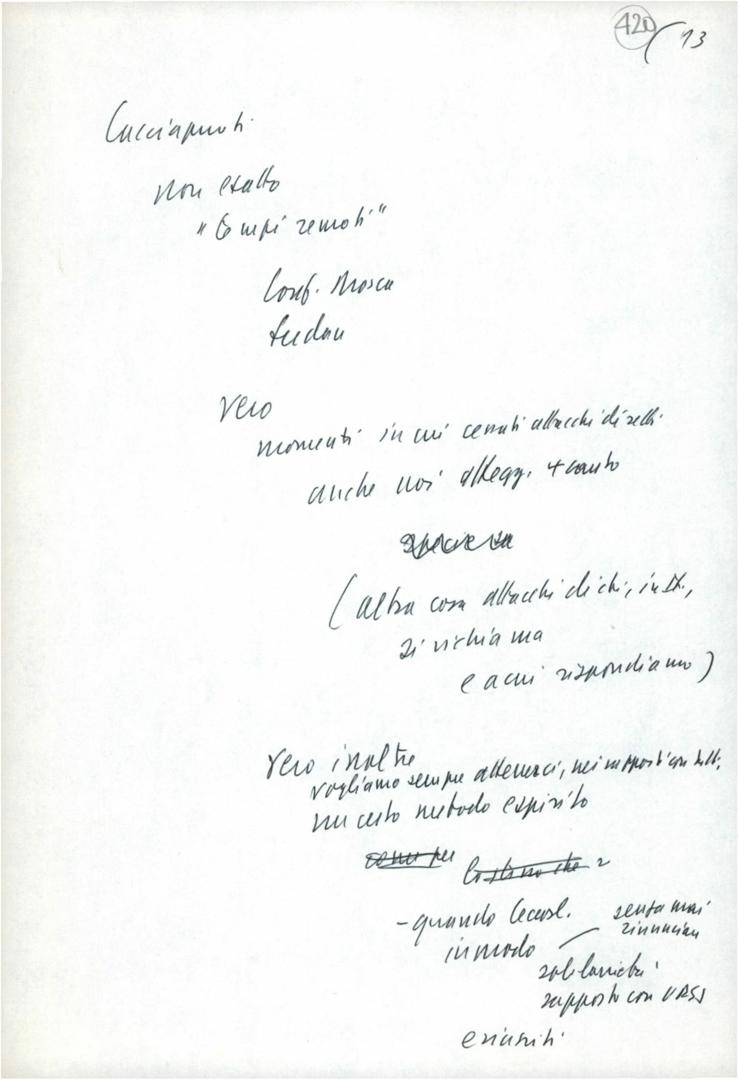 420 (13
Cucciapuoti
non esatto
"tempi remoti"
Conf. Mosca
Sudan
Vero
momenti in cui cessati attacchi diretti
anche noi attegg. + cauto
(altra cosa attacchi di chi, in It.,
si richiama
e a cui rispondiamo)
Vero inoltre
vogliamo sempre attenerci, nei rapporti con tutti,
un certo metodo e spirito
- quando Cecosl. senza mai
in modo rinunciare
solidarietà
rapporto con URSS